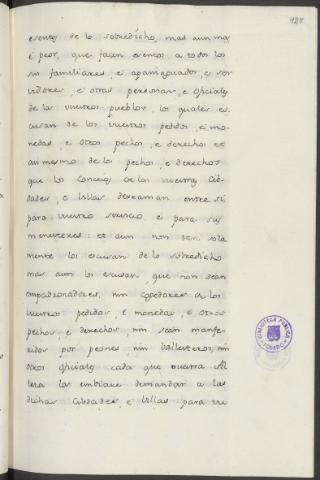 esentos de lo sobredicho, mas aun mas
é peor, que facen esentos a todos los
sus familiares, e apaniguados, e ser
vidores, e otras personas, e oficiales
de las vuestros pueblos, los quales es
cusan de los vuestros pedidos, e mo
nedas, e otros pechos, e derechos et
asi mesmo de los pechos, e derechos
que los Concejos de las vuestras Cib
dades, e Villas derraman entre si
para vuestro servicio, e para sus
menesteres: et aun non tan sola
mente los escusan de lo sobredicho
mas aun los escusan, que non sean
empadronadores, nin cogedores de los
vuestros pedidos, e monedas, e otros
pechos, e derechos, nin sean manfe
ridos por peones, nin ballesteros, nin
otros oficiales cada que vuestra Al
teza los embiare demandar a las
dichas Cibdades, e Villas para vro
BIBLIOTECA PUBLICA
TOLEDO